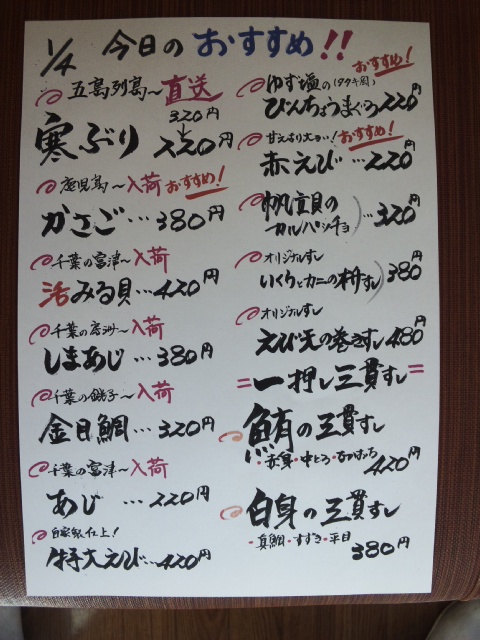 1/4 今日のおすすめ!!
五島列島〜直送
320円
↓
寒ぶり 220円
鹿児島〜入荷 おすすめ!
かさご…380円
千葉の富津〜入荷
活みる貝…420円
千葉の房州〜入荷
しまあじ…380円
千葉の銚子〜入荷
金目鯛…320円
千葉の富津〜入荷
あじ…220円
自家製仕上!
特大えび…420円
おすすめ!
ゆず塩の(タタキ風)
びんちょうまぐろ220円
甘えより大きい! おすすめ!
赤えび…220円
帆立貝の
カルパッチョ…320円
オリジナルすし
いくらとカニの枡すし380円
オリジナルすし
えび天の巻きすし480円
=一押し三貫すし=
鮪の三貫すし
・赤身・中とろ・ねぎとろ
420円
白身の三貫すし
・真鯛・すずき・平目
380円